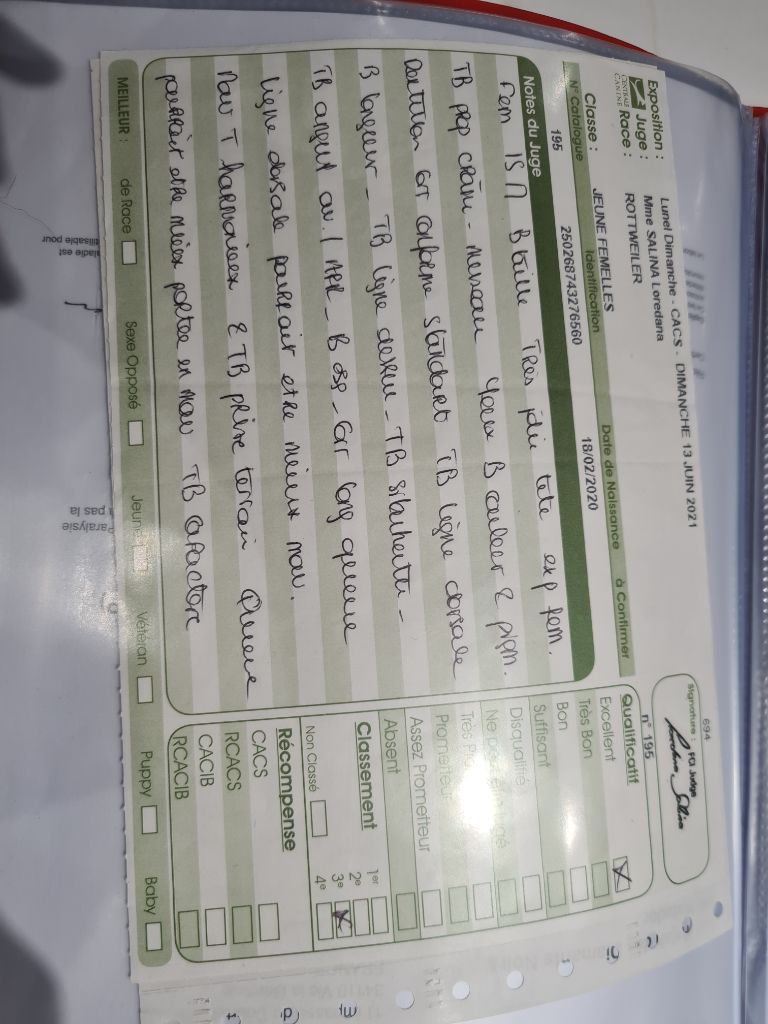 Exposition : Lunel Dimanche - CACS - DIMANCHE 13 JUIN 2021
Juge : Mme SALINA Loredana
Race : ROTTWEILER
CENTRALE CANINE
Classe : JEUNE FEMELLES
N° Catalogue Identification Date de Naissance à Confirmer
195 250268743276560 18/02/2020
Notes du Juge
Fem 15 M B taille Très jolie tete exp fem.
TB prop crâne - museau Yeux B couleur &
Dentition est conforme standard TB ligne dorsale
B largeur - TB ligne dessu - TB silhouette -
TB angul av. / - B - long queue
ligne dorsale pourrait etre mieux mou.
Mou T harmonieux & TB prise terrain Queue
pourrait etre mieux portée en mou TB caractère
MEILLEUR : de Race Sexe Opposé Jeune Vétéran Puppy Baby
694
Signature : FCI Judge
n° 195
Qualificatif
Excellent
Très Bon
Bon
Suffisant
Disqualifié
Ne
Très
Prometteur
Assez Prometteur
Absent
Classement
1er
2e
3e
4e
Non Classé
Récompense
CACS
RCACS
CACIB
RCACIB